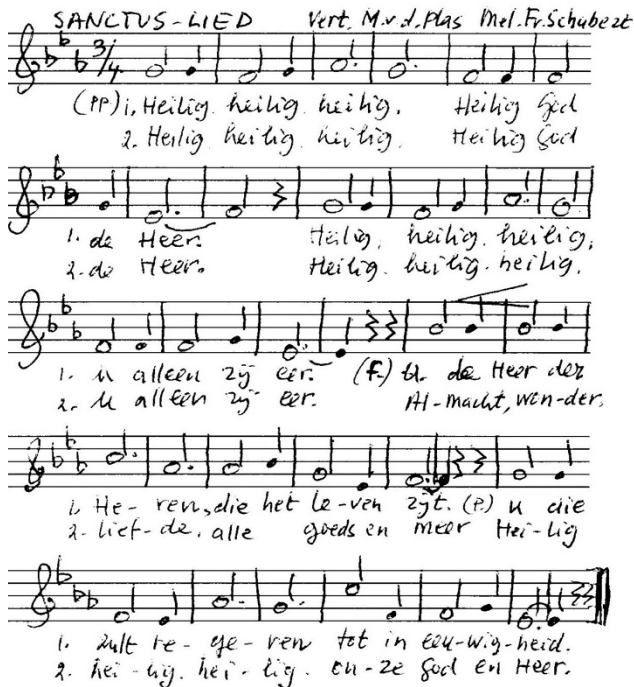 SANCTUS-LIED Vert. M.v.d.Plas Mel. Fr. Schubert
3/4
(PP) 1. Heilig heilig heilig. Heilig God
2. Heilig heilig heilig. Heilig God
1. de Heer. Heilig, heilig. heilig,
2. de Heer. Heilig. heilig. heilig.
1. U alleen zij eer. (f.) U. de Heer der
2. U alleen zij eer. Al-macht, won-der.
1. He-ren, die het le-ven zijt. (P) U die
2. lief-de. alle goeds en meer Hei-lig
1. zult re-ge-ren tot in eeu-wig-heid.
2. hei-lig. hei-lig. on-ze God en Heer.